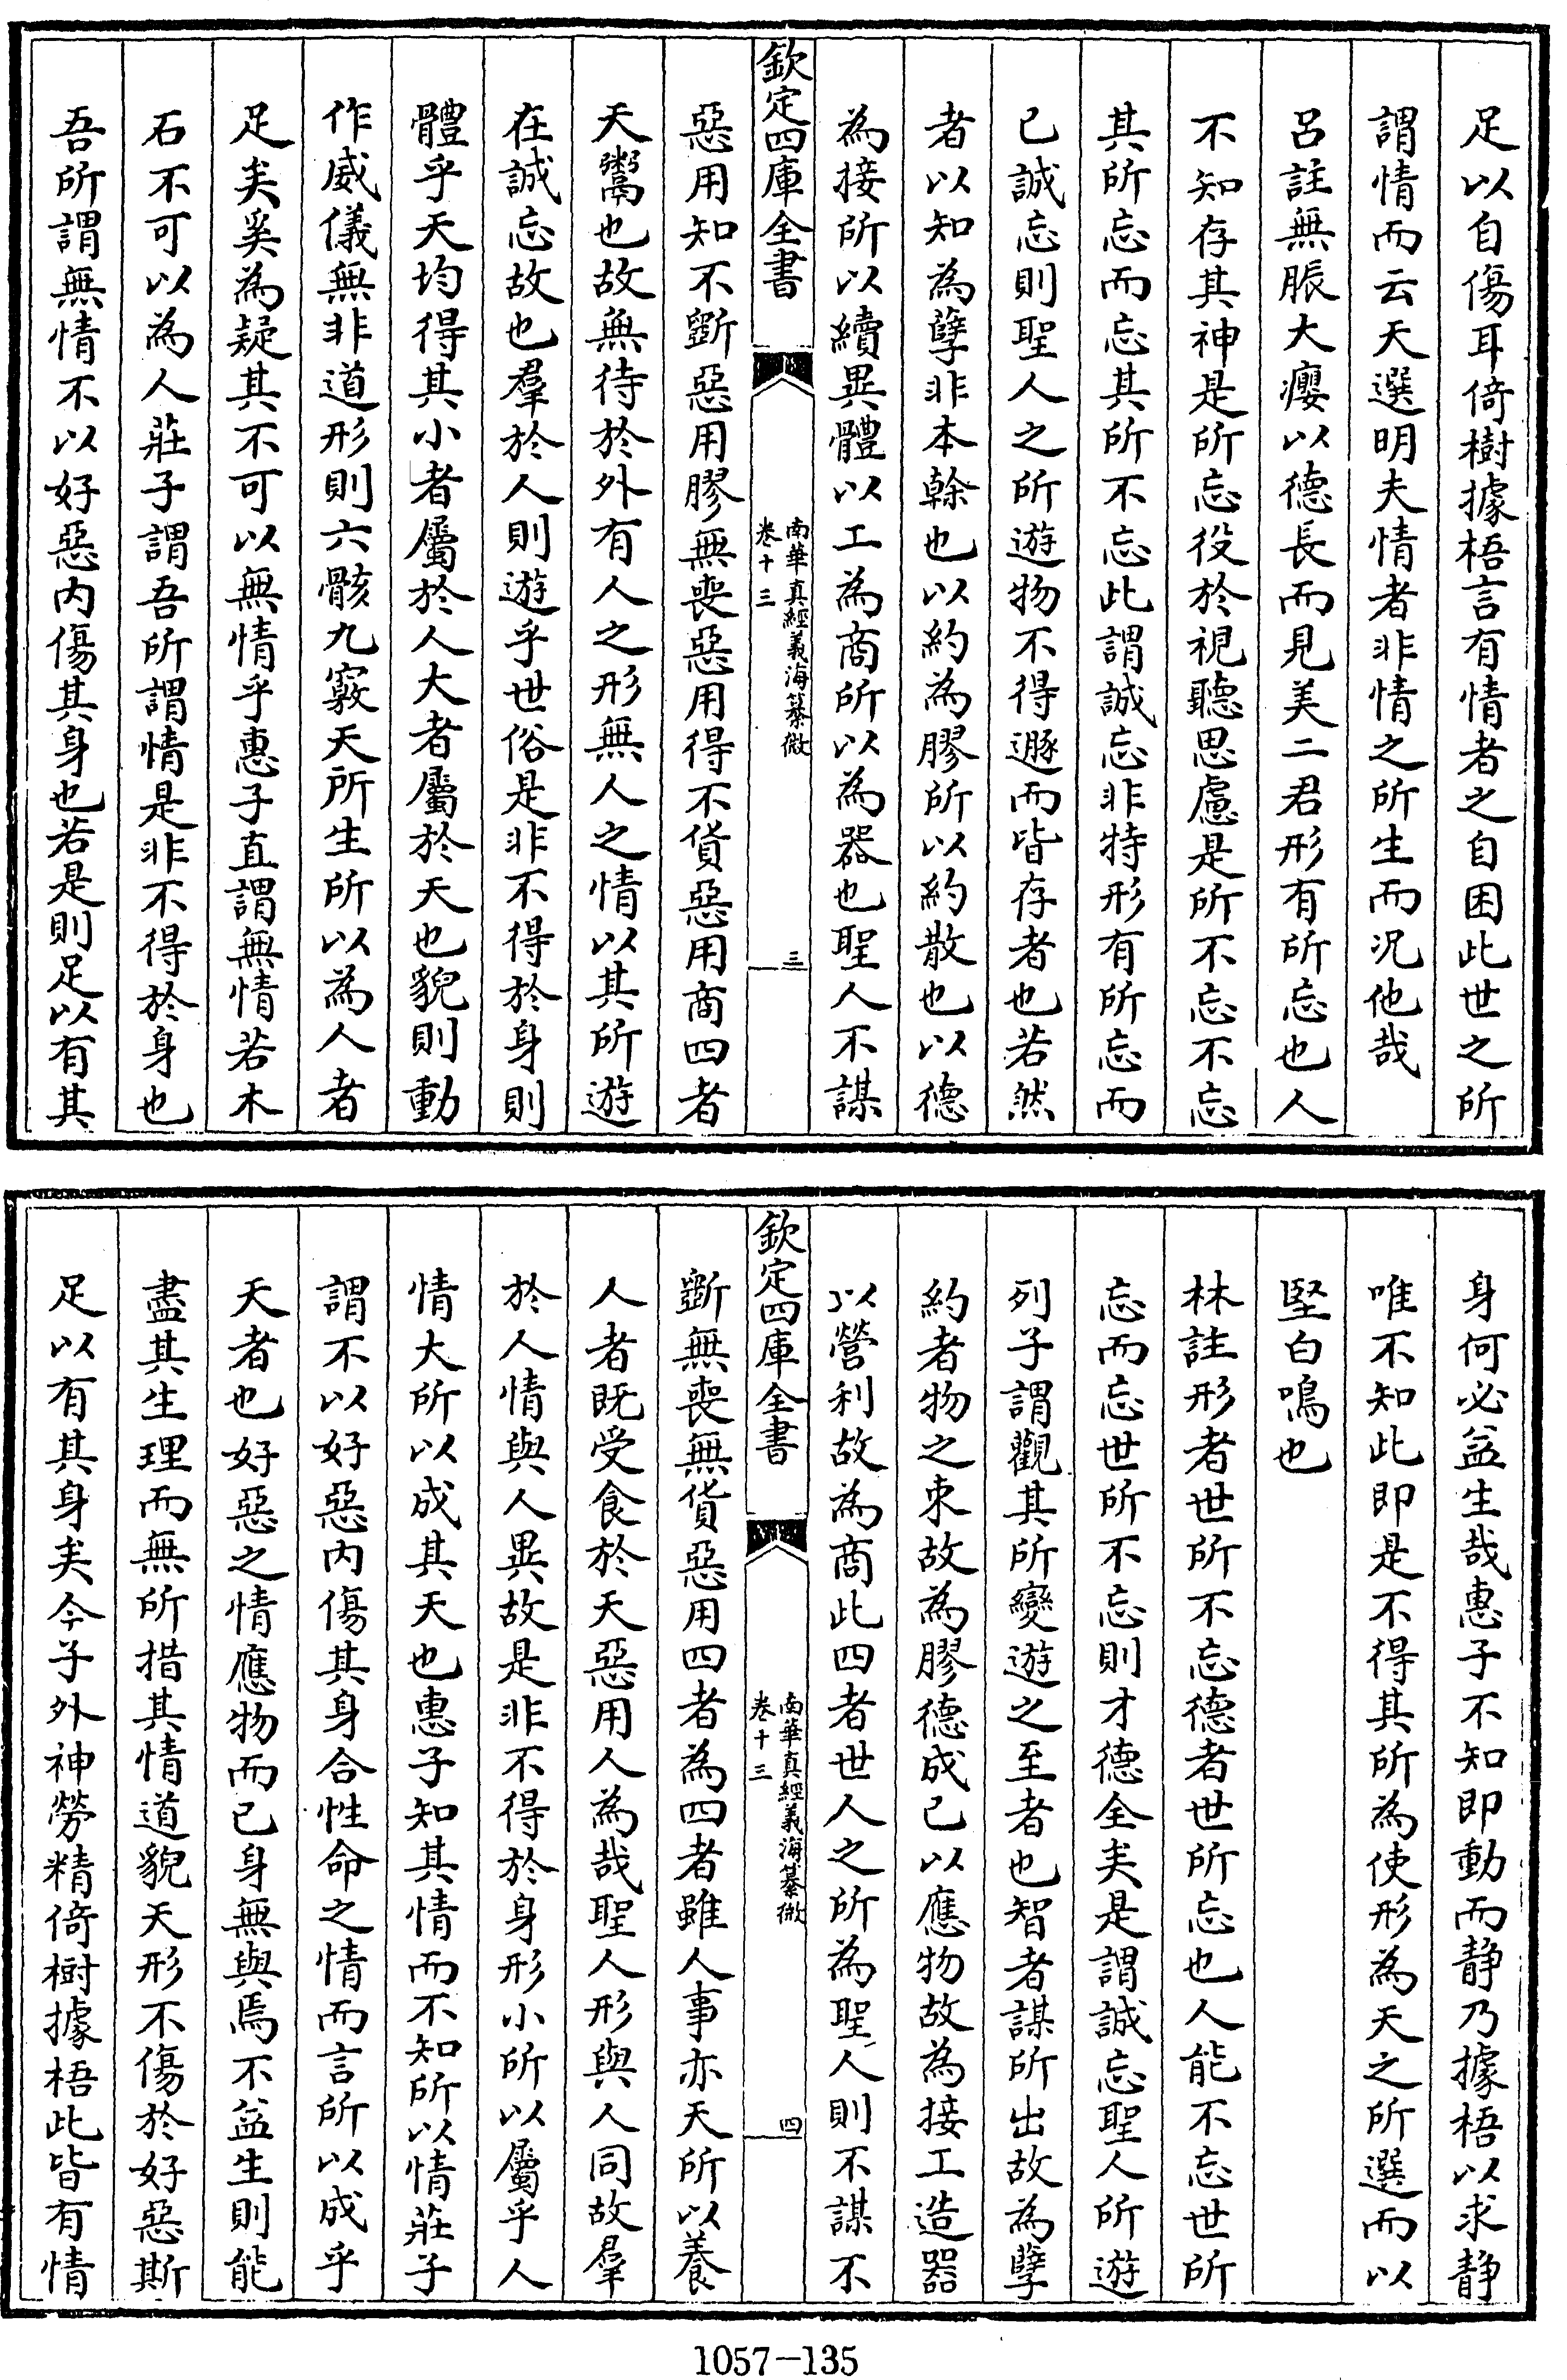 足以自傷耳倚樹據梧言有情者之自困此世之所
謂情而云天選明夫情者非情之所生而况他哉
呂註無脤大癭以德長而見美二君形有所忘也人
不知存其神是所忘役於視聽思慮是所不忘不忘
其所忘而忘其所不忘此謂誠忘非特形有所忘而
已誠忘則聖人之所遊物不得遯而皆存者也若然
者以知為孽非本榦也以約為膠所以約散也以德
為接所以續異體以工為商所以為器也聖人不謀
欽定四庫全書
南華真經義海纂微
卷十三
三
惡用知不斵惡用膠無喪惡用得不貨惡用商四者
天鬻也故無待於外有人之形無人之情以其所遊
在誠忘故也羣於人則遊乎世俗是非不得於身則
體乎天均得其小者屬於人大者屬於天也貌則動
作威儀無非道形則六骸九竅天所生所以為人者
足矣奚為疑其不可以無情乎惠子直謂無情若木
石不可以為人莊子謂吾所謂情是非不得於身也
吾所謂無情不以好惡内傷其身也若是則足以有其
身何必益生哉惠子不知即動而静乃據梧以求静
唯不知此即是不得其所為使形為天之所選而以
堅白鳴也
林註形者世所不忘德者世所忘也人能不忘世所
忘而忘世所不忘則才德全矣是謂誠忘聖人所遊
列子謂觀其所變遊之至者也智者謀所出故為孽
約者物之束故為膠德成已以應物故為接工造器
以營利故為商此四者世人之所為聖人則不謀不
欽定四庫全書
南華真經義海纂微
卷十三
四
斵無喪無貨惡用四者為四者雖人事亦天所以養
人者既受食於天惡用人為哉聖人形與人同故羣
於人情與人異故是非不得於身形小所以屬乎人
情大所以成其天也惠子知其情而不知所以情莊子
謂不以好惡内傷其身合性命之情而言所以成乎
天者也好惡之情應物而已身無與焉不益生則能
盡其生理而無所措其情道貌天形不傷於好惡斯
足以有其身矣今子外神勞精倚樹據梧此皆有情
1057-135